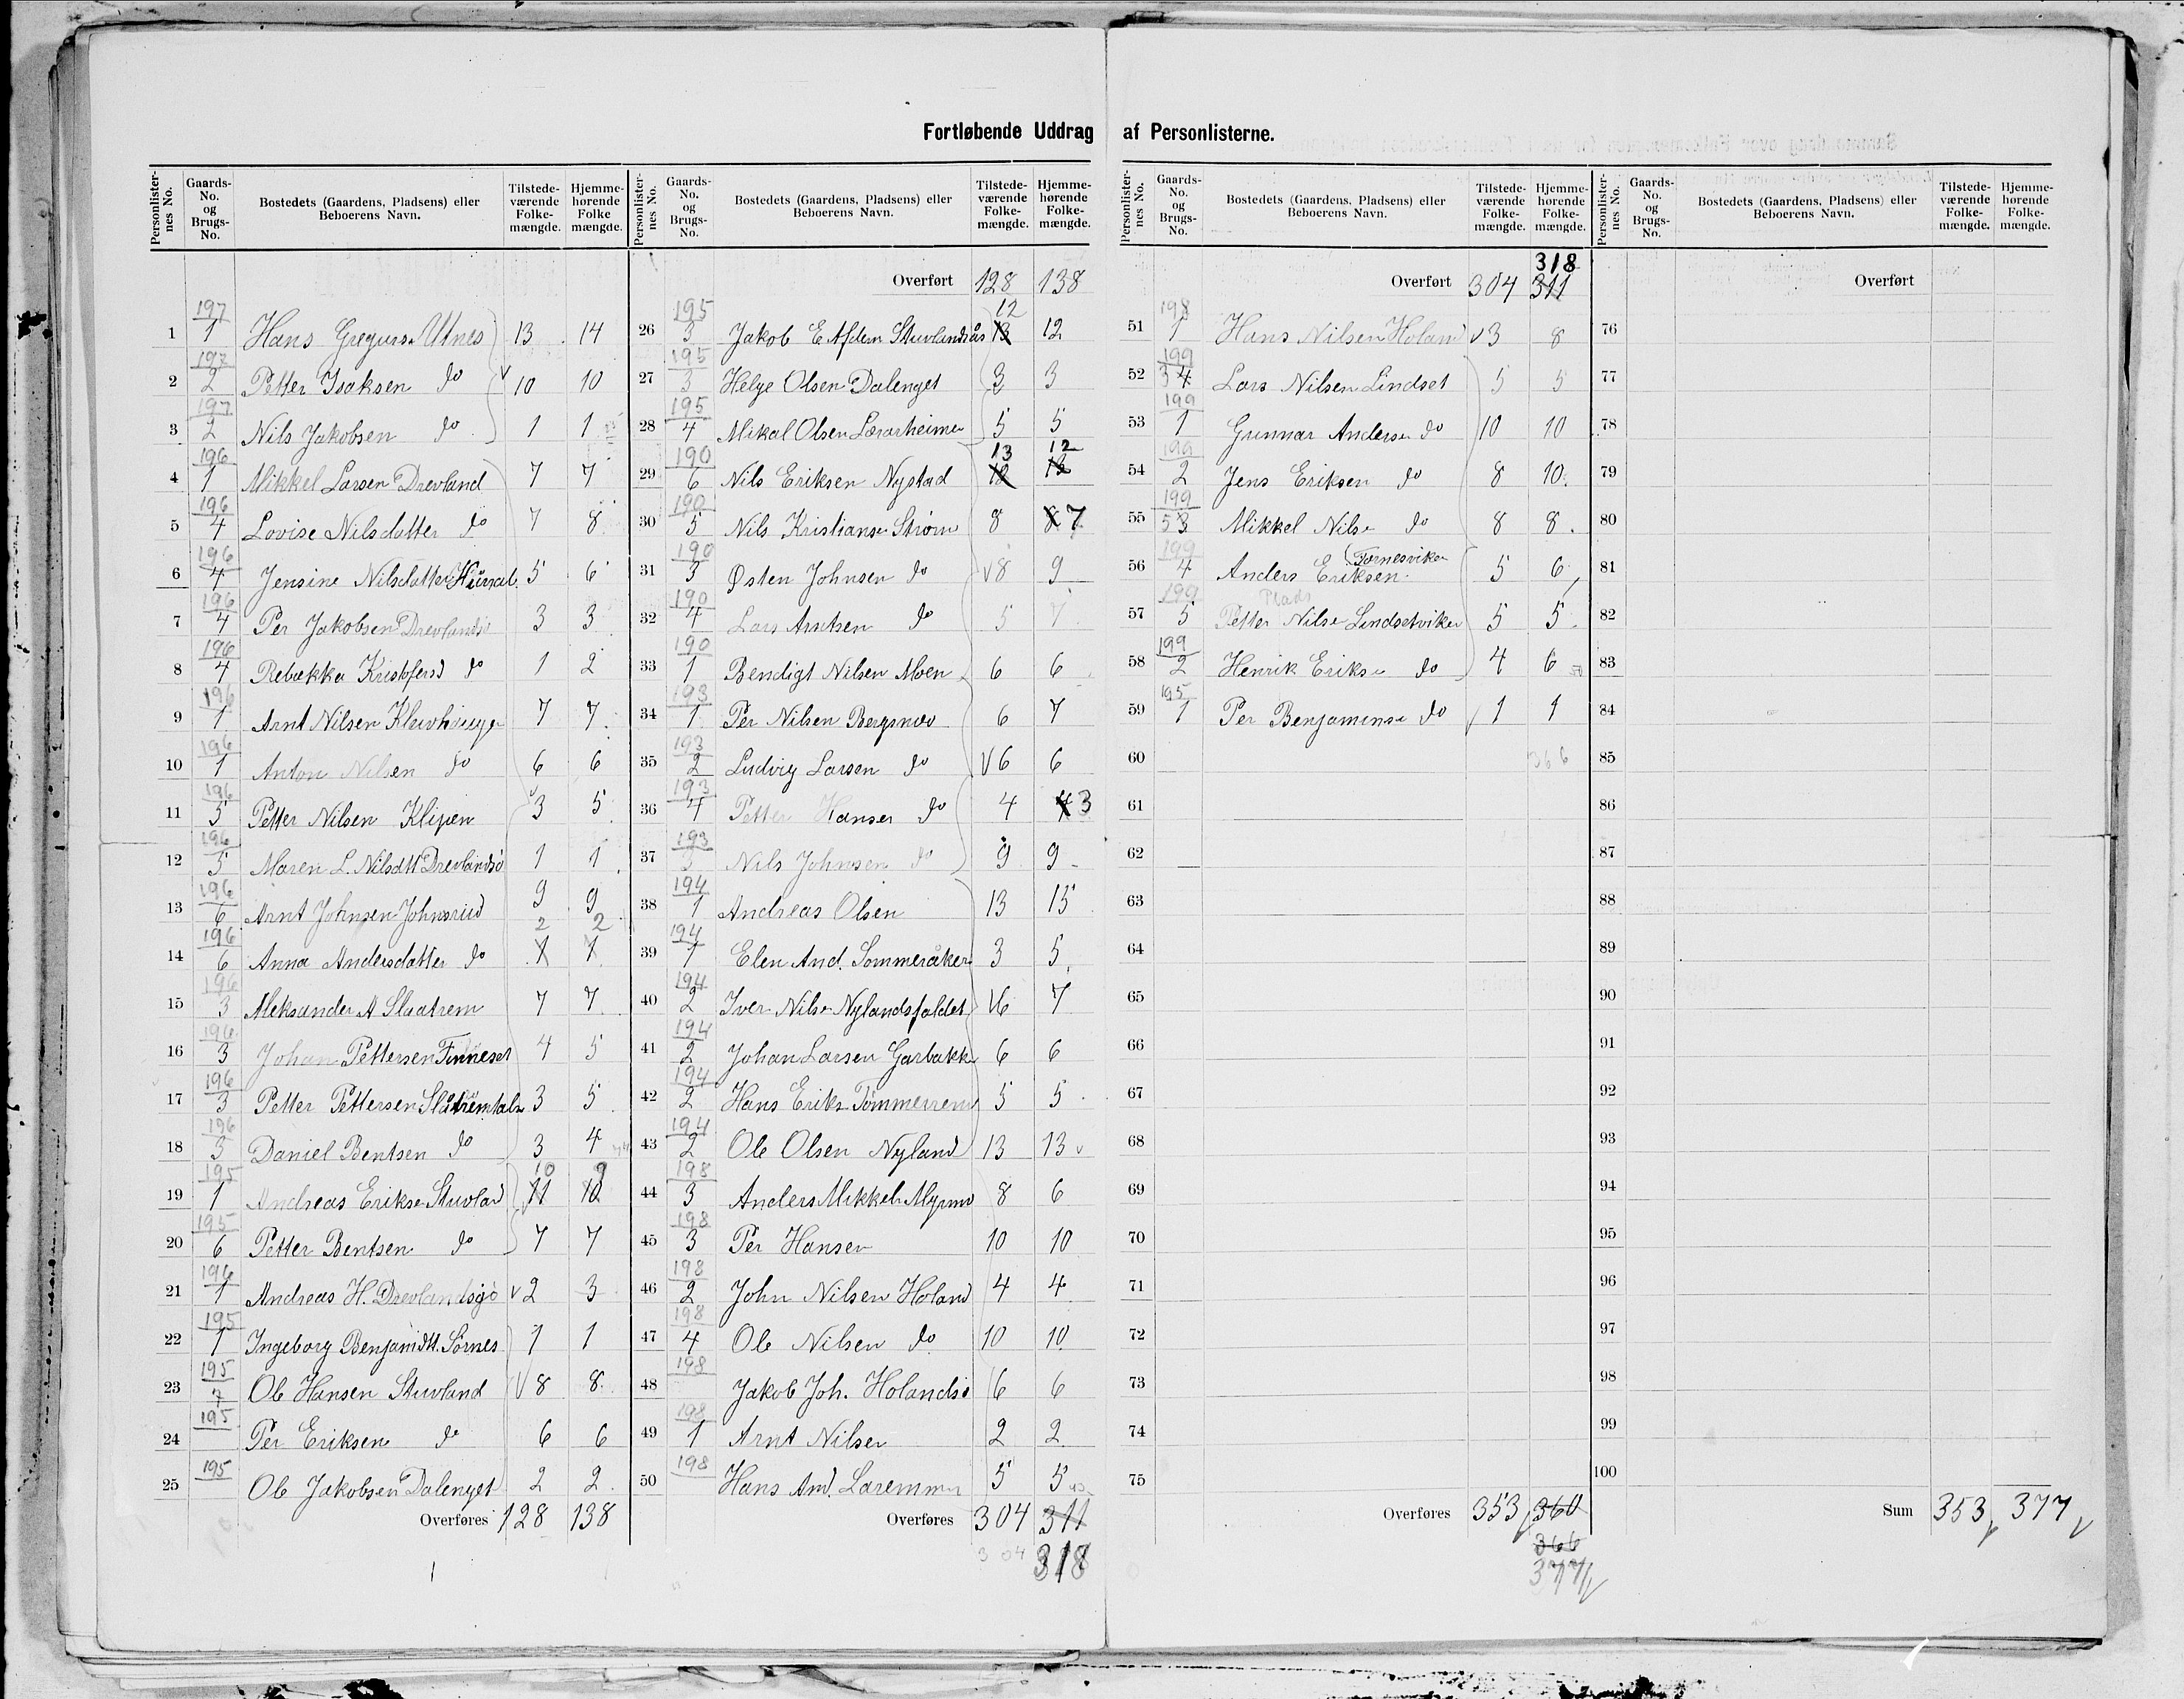 Fortløbende Uddrag af Personlisterne.
Personlisternes No. Gaards-No. og Brugs-No. Bostedets (Gaardens, Pladsens) eller Beboerens Navn. Tilstedeværende Folkemængde. Hjemmehørende Folkemængde.
1 197/1 Hans Greguss. Utnes 13 14
2 197/2 Petter Isaksen do 10 10
3 197/2 Nils Jakobsen do 1 1
4 196/1 Mikkel Larsen Drevland 7 7
5 196/4 Lovise Nilsdatter do 7 8
6 196/4 Jensine Nilsdatter 5 6
7 196/4 Per Jakobsen Drevlandsjø 3 3
8 196/4 Rebækka Kristofersd do 1 2
9 196/1 Arnt Nilsen Kluvhauge 7 7
10 196/1 Anton Nilsen do 6 6
11 196/5 Petter Nilsen Klipen 3 5
12 196/5 Maren L. Nilsdtt Drevlandsjø 1 1
13 196/6 Arnt Johnsen Johnsrud 9 9
2 2
14 196/6 Anna Andersdatter do 1 1
15 196/3 Aleksander A Slaatrem 7 7
16 196/3 Johan Pettersen Finneset 4 5
17 196/3 Petter Pettersen 3 5
18 196/3 Daniel Bentsen do 3 4
10 9
19 195/1 Andreas Erikse Stuvland 11 10
20 195/6 Petter Bentsen do 7 7
21 196/1 Andreas H. Drevlandsjø 2 3
22 195/1 Ingeborg Benjamidtt. Sørnes 1 1
23 195/7 Ole Hansen Stuvland 8 8
24 195 Per Eriksen do 6 6
25 195 Ole Jakobsen Dalenget 2 2
Overføres 128 138
Overført 128 138
12
26 195/3 Jakob E 13 12
27 195/3 Helge Olsen Dalenget 3 3
28 195/4 Mikal Olsen 5 5
13 12
29 190/6 Nils Eriksen Nystad 12 13
30 190/5 Nils Kristianse Strøm 8 8 7
31 190/3 Østen Johnsen do 8 9
32 190/4 Lars Arntsen do 5 7
33 190/1 Bendigt Nilsen Moen 6 6
34 193/1 Per Nilsen Bergsnov 6 7
35 193/2 Ludvig Larsen do 6 6
36 193/4 Petter Hansen do 4 4 3
37 193 Nils Johnsen do 9 9
38 194/1 Andreas Olsen 13 15
39 194/1 Elen And. Sommeråker 3 5
40 194/2 Iver Nilse Nylandsfaldet 6 7
41 194/2 Johan Larsen Garbakk 6 6
42 194/2 Hans Eriks. Tømmerrem 5 5
43 194/2 Ole Olsen Nyland 13 13
44 198/3 Anders Mikkels Myrmo 8 6
45 198/3 Per Hansen 10 10
46 198/2 John Nilsen Holand 4 4
47 198/4 Ole Nilsen do 10 10
48 198 Jakob Joh. Holandsø 6 6
49 198/1 Arnt Nilsen 2 2
50 198 Hans And. 5 5
Overføres 304 311
304 318
318
Overført 304 311
51 198/1 Hans Nilsen Holand 3 8
52 199/3 4 Lars Nilsen Lindset 5 5
53 199/1 Gunnar Anderse do 10 10
54 199/2 Jens Eriksen do 8 10
55 199/5 3 Mikkel Nilse do 8 8
56 199/4 Anders Eriksen Tornesviken 5 6
Plads
57 199/5 Petter Nilse Lindsetviken 5 5
58 199/2 Henrik Erikse do 4 6
59 195/1 Per Benjaminse do 1 1
60 366
61
62
63
64
65
66
67
68
69
70
71
72
73
74
75
Overføres 353 360
366
377
Overført
76
77
78
79
80
81
82
83
84
85
86
87
88
89
90
91
92
93
94
95
96
97
98
99
100
Sum 353 377